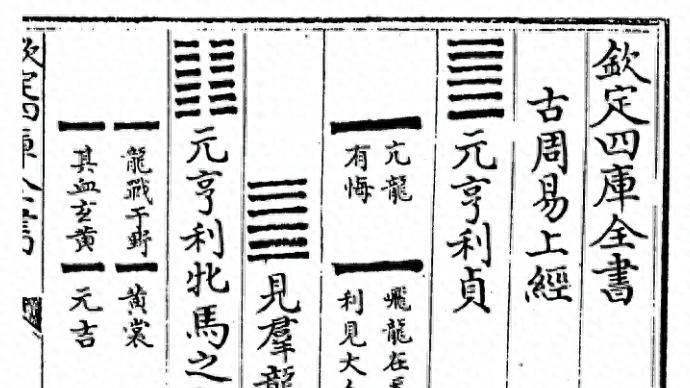 欽定四庫全書
古周易上經
元亨利貞
亢龍
有悔
飛龍在
利見大
見羣龍
元亨利牝馬之
龍戰于野
其血玄黃
黃裳
元吉